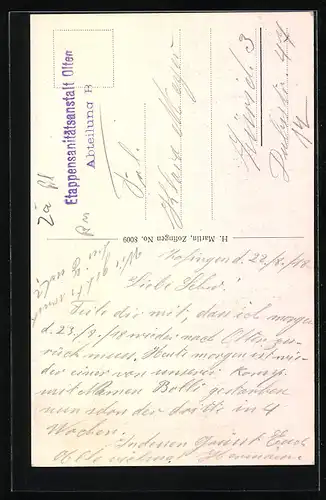 Etappensanitätsanstalt Olten
Abteilung B
An
Frl.
Klara Meyer
Zürich 3
47
14
H. Martin, Zofingen No. 8009
Zofingen d. 22./8./18.
Liebe Schw.!
Teile dir mit, dass ich morgen
d. 23./8./18 wieder nach Olten zu-
rück muss. Heute morgen ist wie-
der einer von unserer Komp.
mit Namen Bolli gestorben
nun schon der dritte in 4
Wochen.
Indessen grüsst Euch
Hermann
Wie geht es